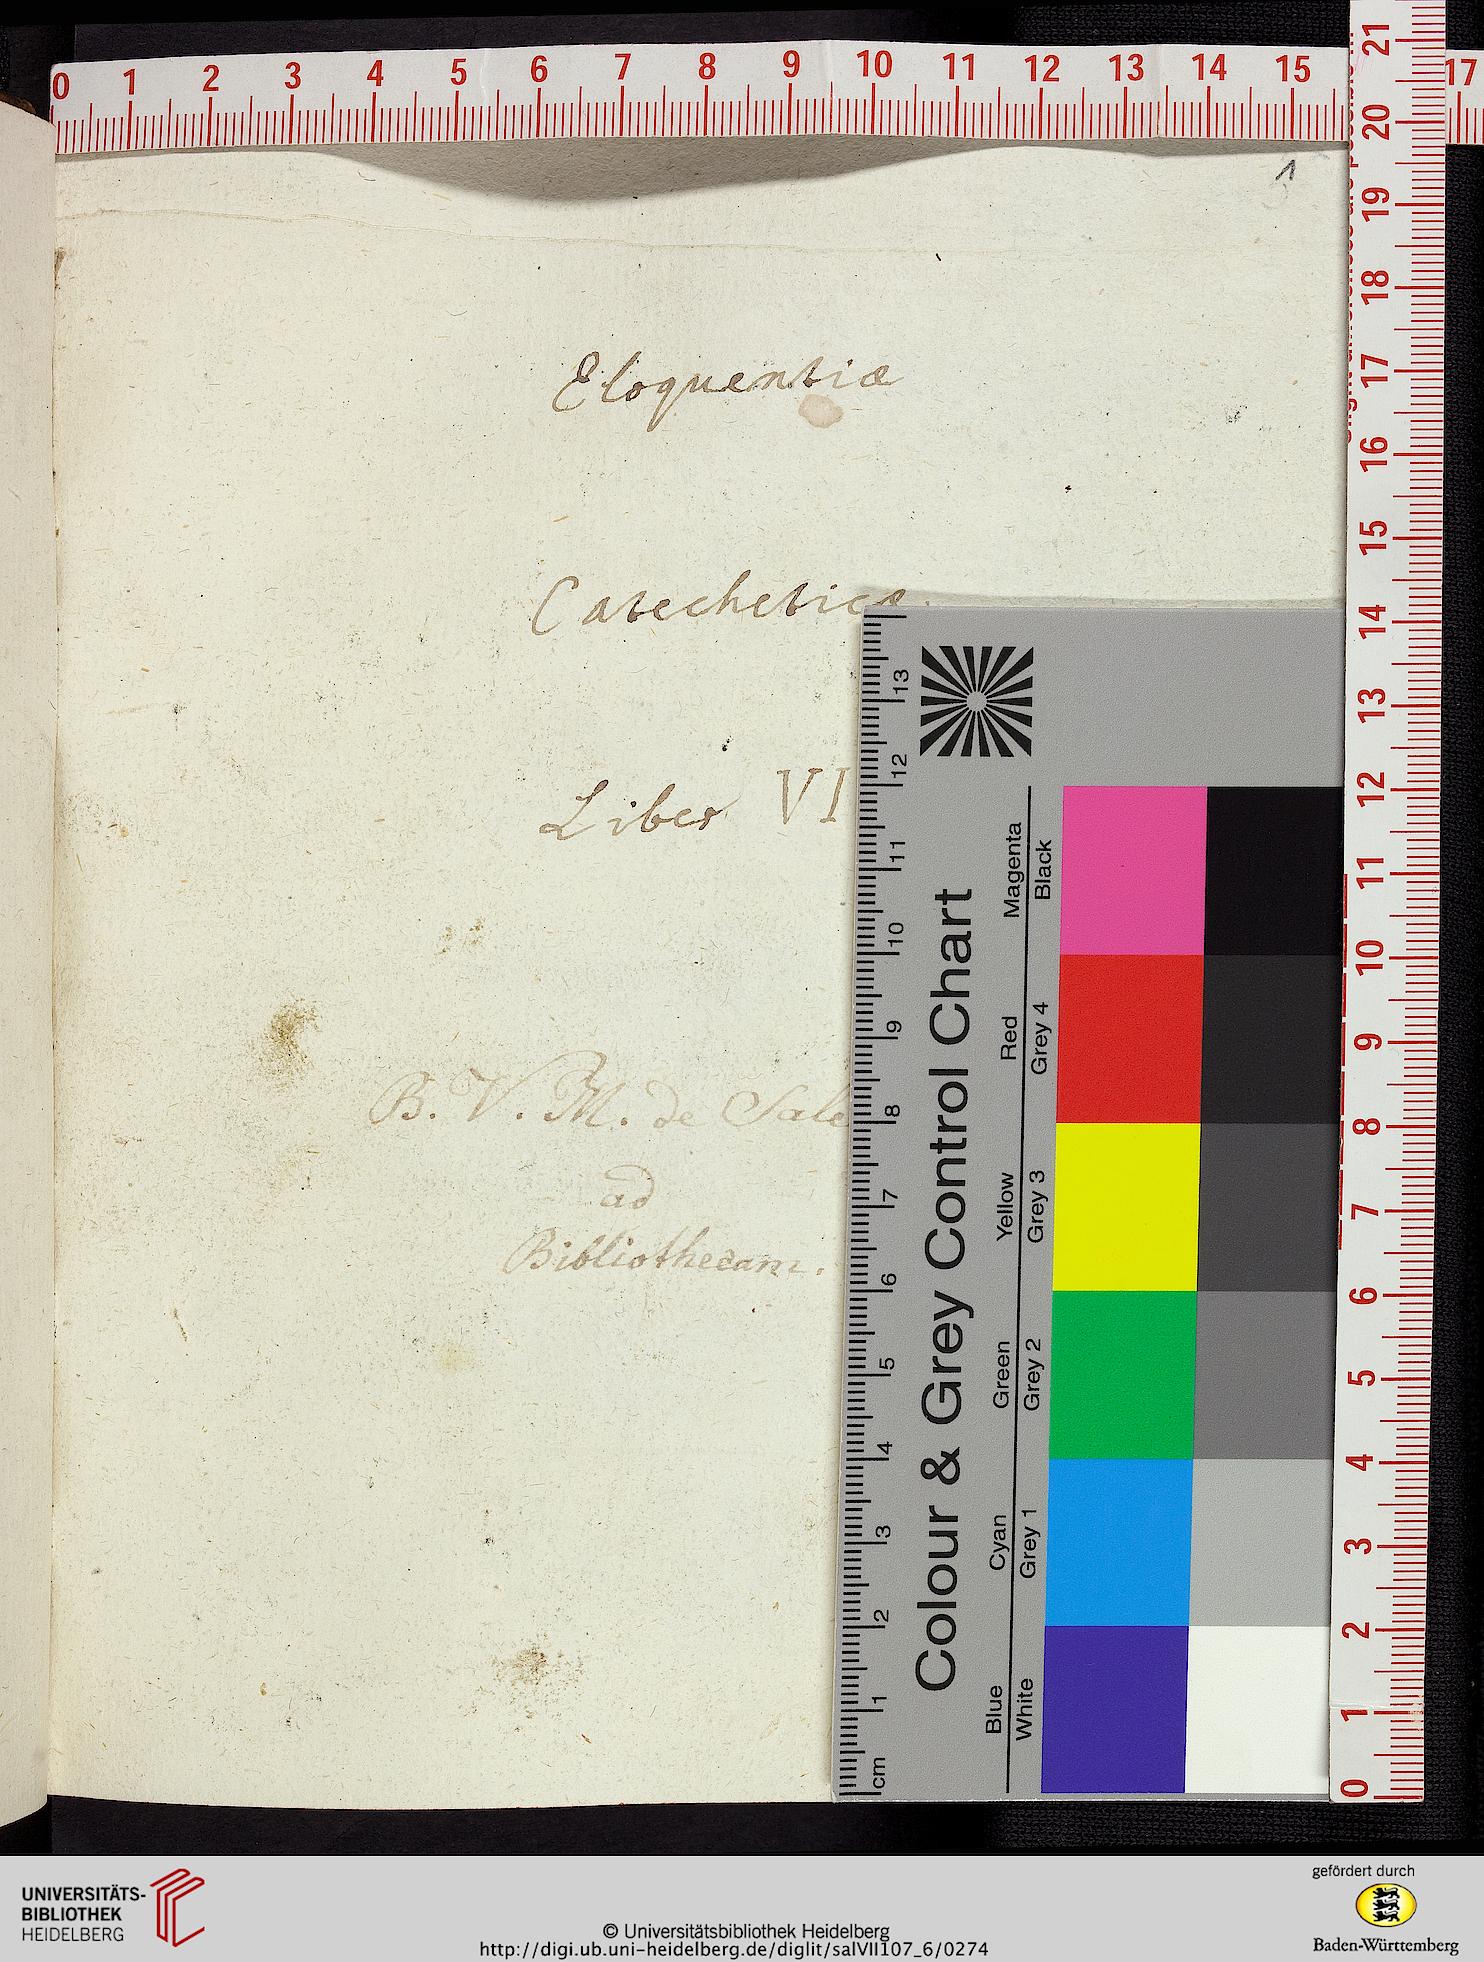 0 1 2 3 4 5 6 7 8 9 10 11 12 13 14 15 17
1
Eloquentiæ
Catecheticæ
Liber VI
B. V. M. de Sale
ad
Bibliothecam.
Colour & Grey Control Chart
Blue Cyan Green Yellow Red Magenta
White Grey 1 Grey 2 Grey 3 Grey 4 Black
cm 1 2 3 4 5 6 7 8 9 10 11 12 13
0 1 2 3 4 5 6 7 8 9 10 11 12 13 14 15 16 17 18 19 20 21
UNIVERSITÄTS-
BIBLIOTHEK
HEIDELBERG
© Universitätsbibliothek Heidelberg
http://digi.ub.uni-heidelberg.de/diglit/salVII107_6/0274
gefördert durch
Baden-Württemberg